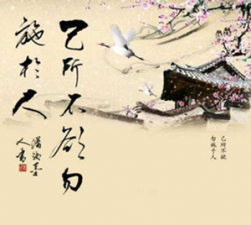 己所不欲勿
施於人
己所不欲
勿施于人